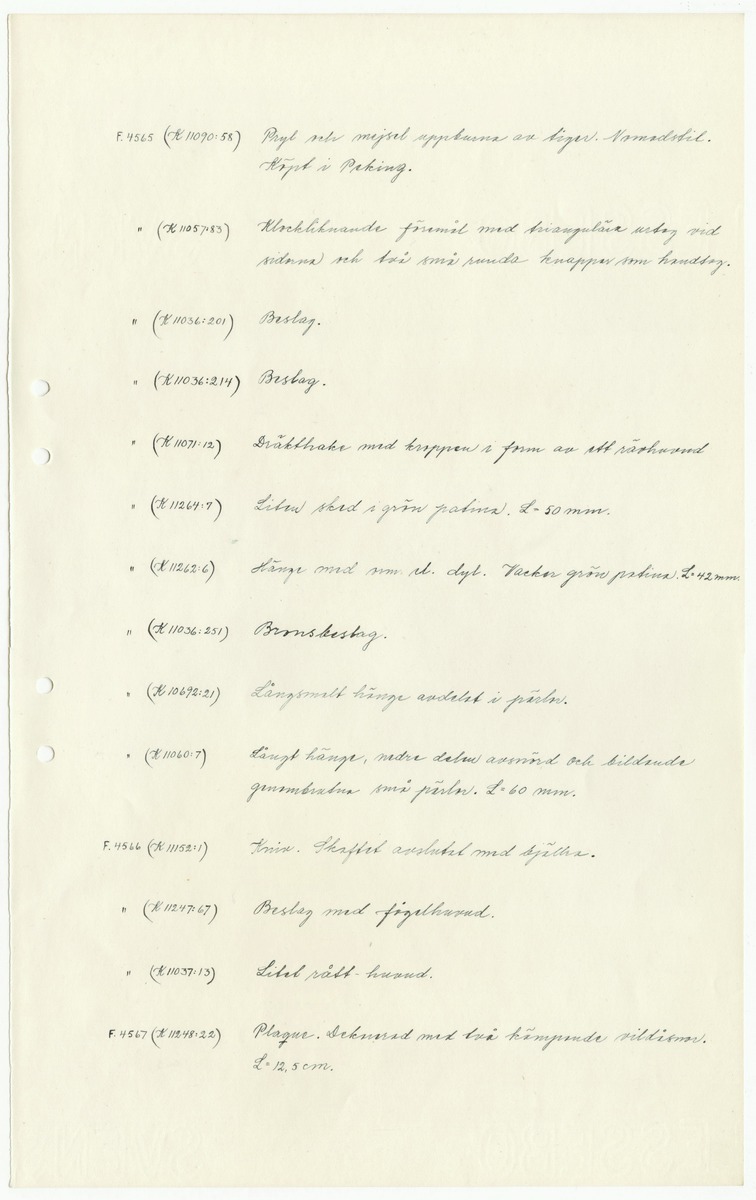 F. 4565 (K 11090:58) Pryl och mejsel uppburna av tiger. Nomadstil.
Köpt i Peking.
" (K 11057:83) Klockliknande föremål med triangulära urtag vid
sidorna och två små runda knappar som handtag.
" (K 11036:201) Beslag.
" (K 11036:214) Beslag.
" (K 11071:12) Dräkthake med kroppen i form av ett rävhuvud
" (K 11264:7) Liten sked i grön patina. L= 50 mm.
" (K 11262:6) Hänge med orm el. dyl. Vacker grön patina. L=42 mm.
" (K 11036:251) Bronsbeslag.
" (K 10692:21) Långsmalt hänge avdelat i pärlor.
" (K 11060:7) Långt hänge, nedre delen avsnörd och bildande
genombrutna små pärlor. L= 60 mm.
F. 4566 (K 11152:1) Kniv. Skaftet avslutat med bjällra.
" (K 11247:67) Beslag med fågelhuvud.
" (K 11037:13) Litet rått-huvud.
F. 4567 (K 11248:22) Plaque. Dekorerad med två kämpande vildåsnor.
L= 12,5 cm.